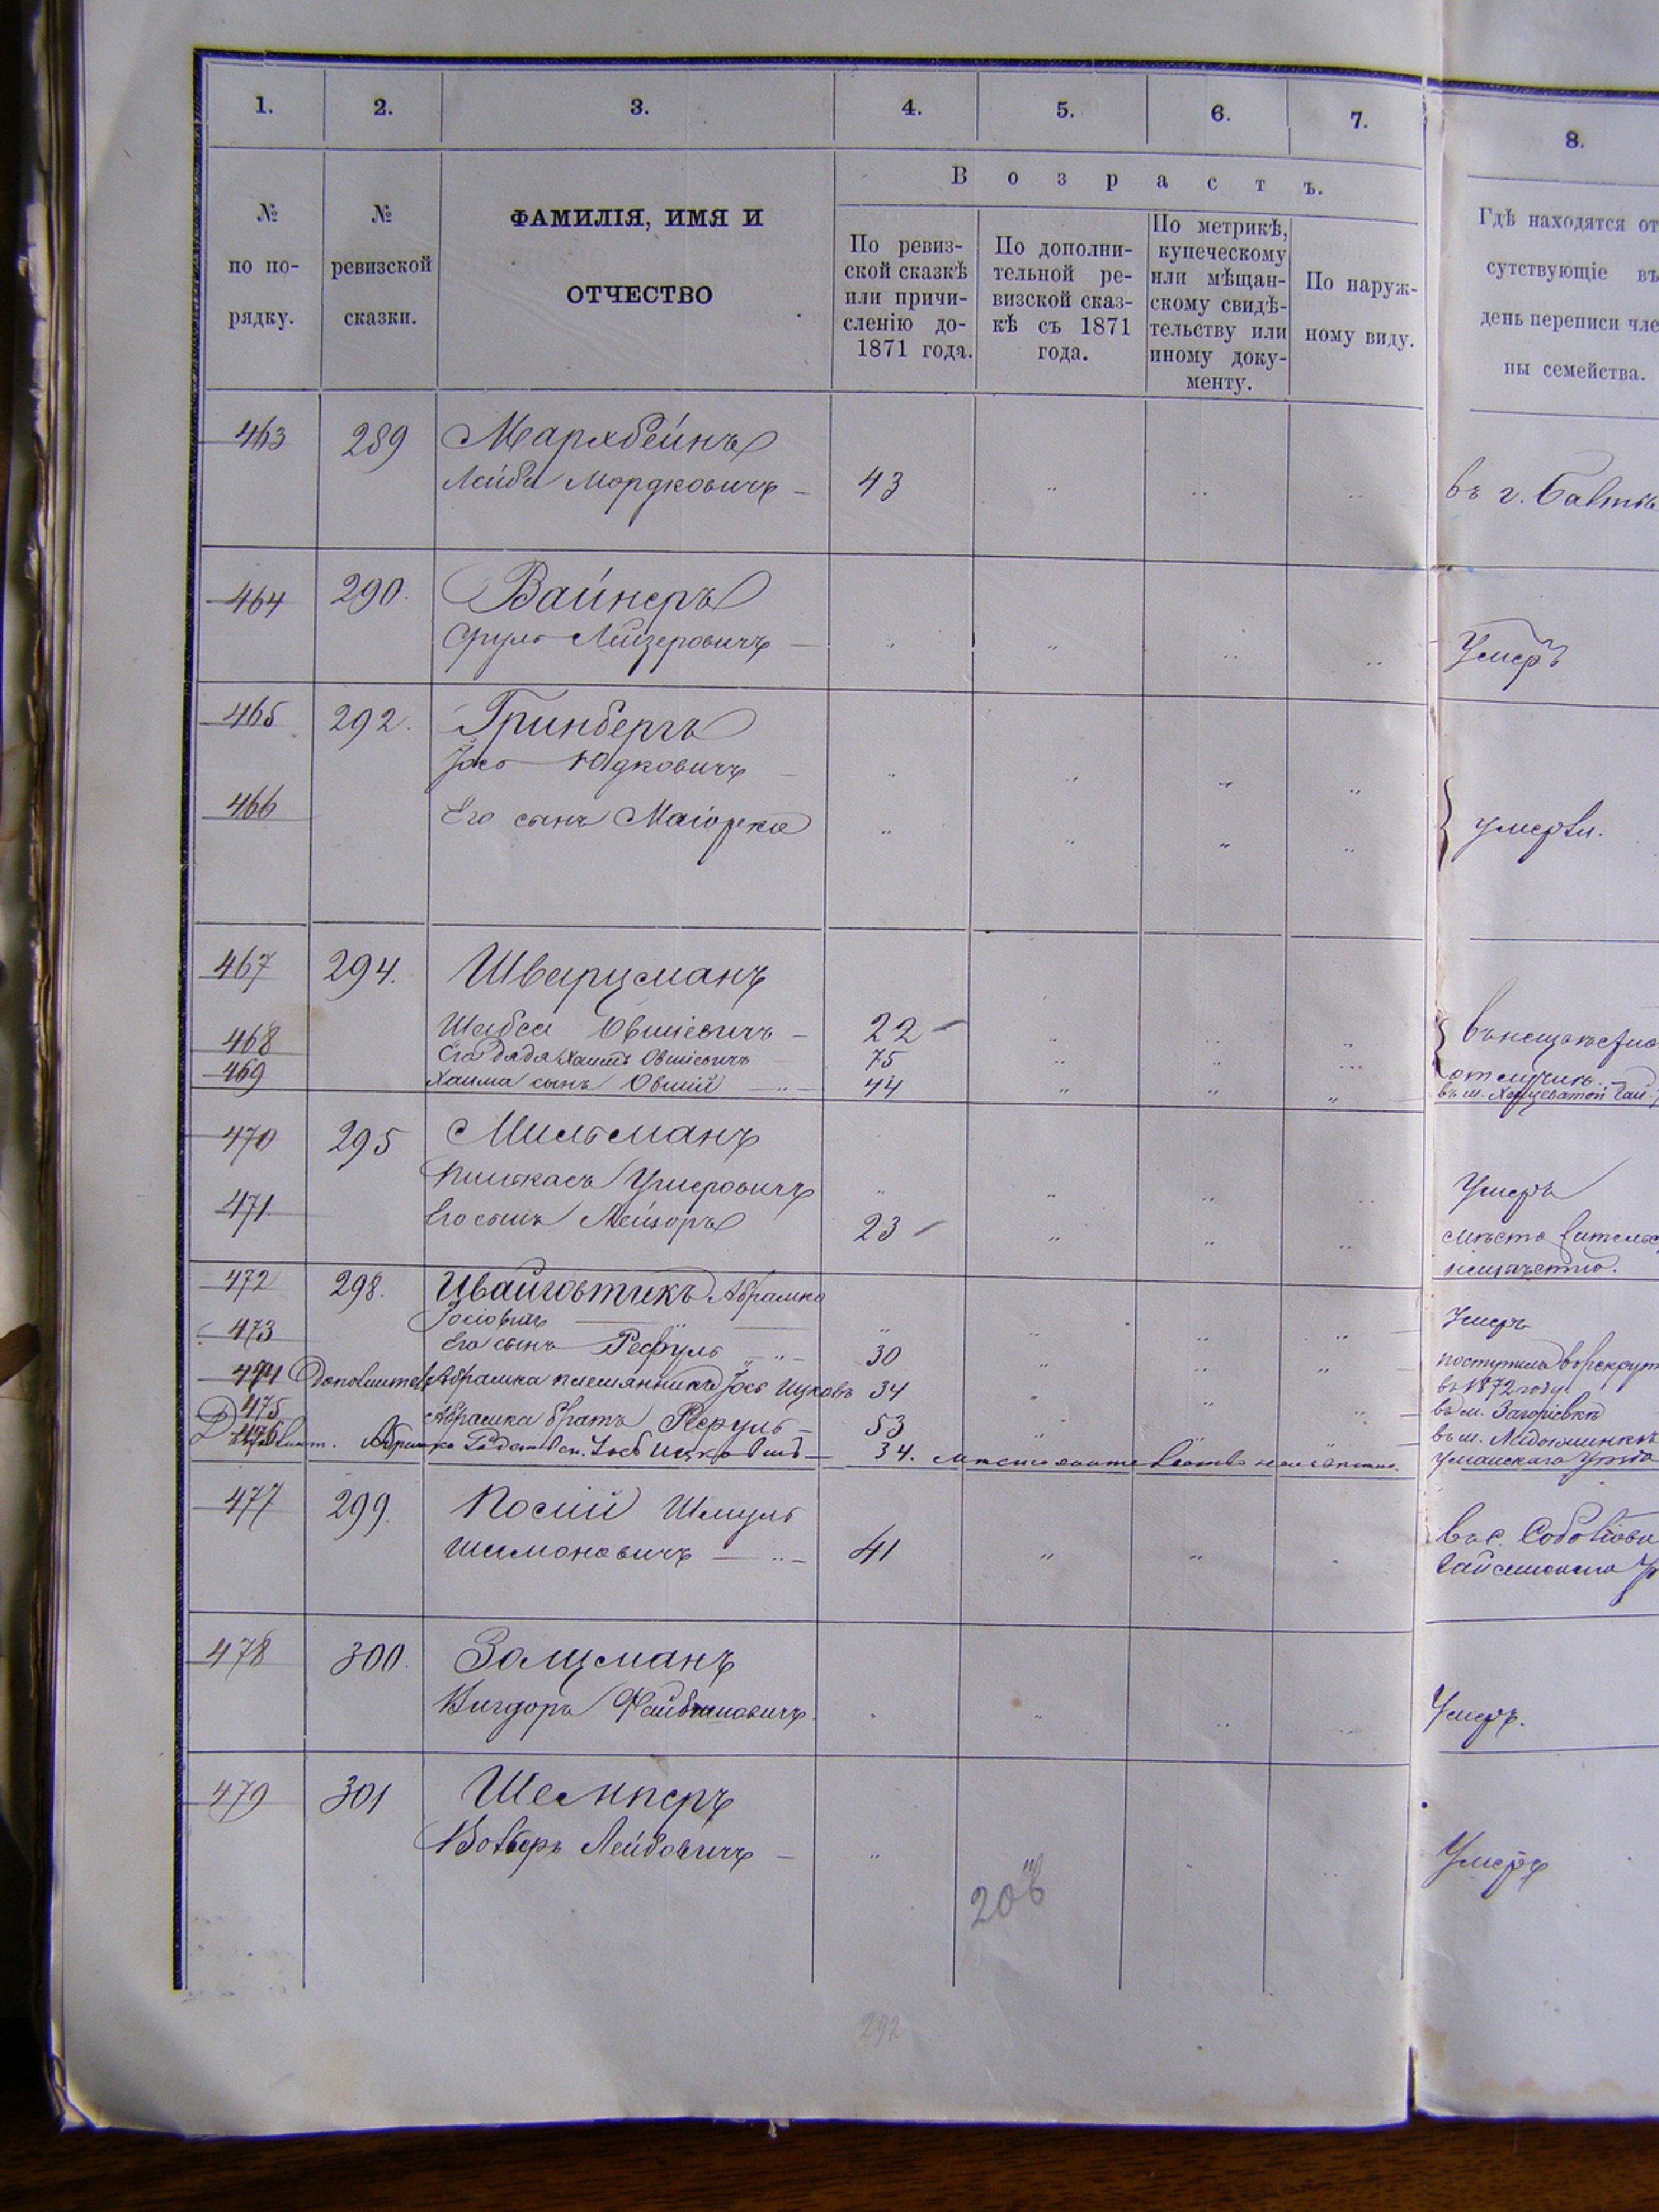 1. 2. 3. 4. 5. 6. 7. 8.
№ по по-рядку.
№ ревизской сказки.
ФАМИЛІЯ, ИМЯ И ОТЧЕСТВО
Возрастъ.
По ревиз-
ской сказкѣ
или причи-
сленію до-
1871 года.
По дополни-
тельной ре-
визской сказ-
кѣ съ 1871
года.
По метрикѣ,
купеческому
или мѣщан-
скому свидѣ-
тельству или
иному доку-
менту.
По наруж-
ному виду.
Гдѣ находятся от
сутствующіе въ
день переписи чле
ны семейства.
463 289 Мархбейнъ
Лейба Мордковичъ — 43 въ г. Балтѣ
464 290. Вайнеръ
Сруль Лейзеровичъ — Умеръ
465 292. Гринбергъ
Іось Юдковичъ —
466 Его сынъ Маіорко умерли.
467 294. Шварцманъ
468 Шабса Овшіевичъ — 22 — въ неизвѣстно
Его дядя Хаимъ Овшіевичъ 75 отлучкѣ
469 Хаима сынъ Овшій — 44 въ м. Хащеватой Гай
470 295 Мильманъ
Пинкасъ Умеровичъ Умеръ
471 Его сынъ Лейзоръ 23 — мѣсто жительс
неизвѣстно.
472 298. Цвайговтикъ Абрамко
Іосіовичъ Умеръ
473 Его сынъ Рефуль 30 поступилъ в рекрут
474 Абрамка племянникъ Іось Ицковъ 34 въ 1872 году
475 Абрамка братъ Рефуль — 53 въ м. Загорісвкѣ
476 Іось Ицковичъ — 34. въ м.
Уманскаго Уѣзда
477 299. Посій Шмуль
Шимоновичъ — 41 въ с.
Гайсинскаго У
478 300. Залцманъ
Вигдоръ Умеръ.
479 301 Шемперъ
Лейбовичъ — Умеръ
206
292